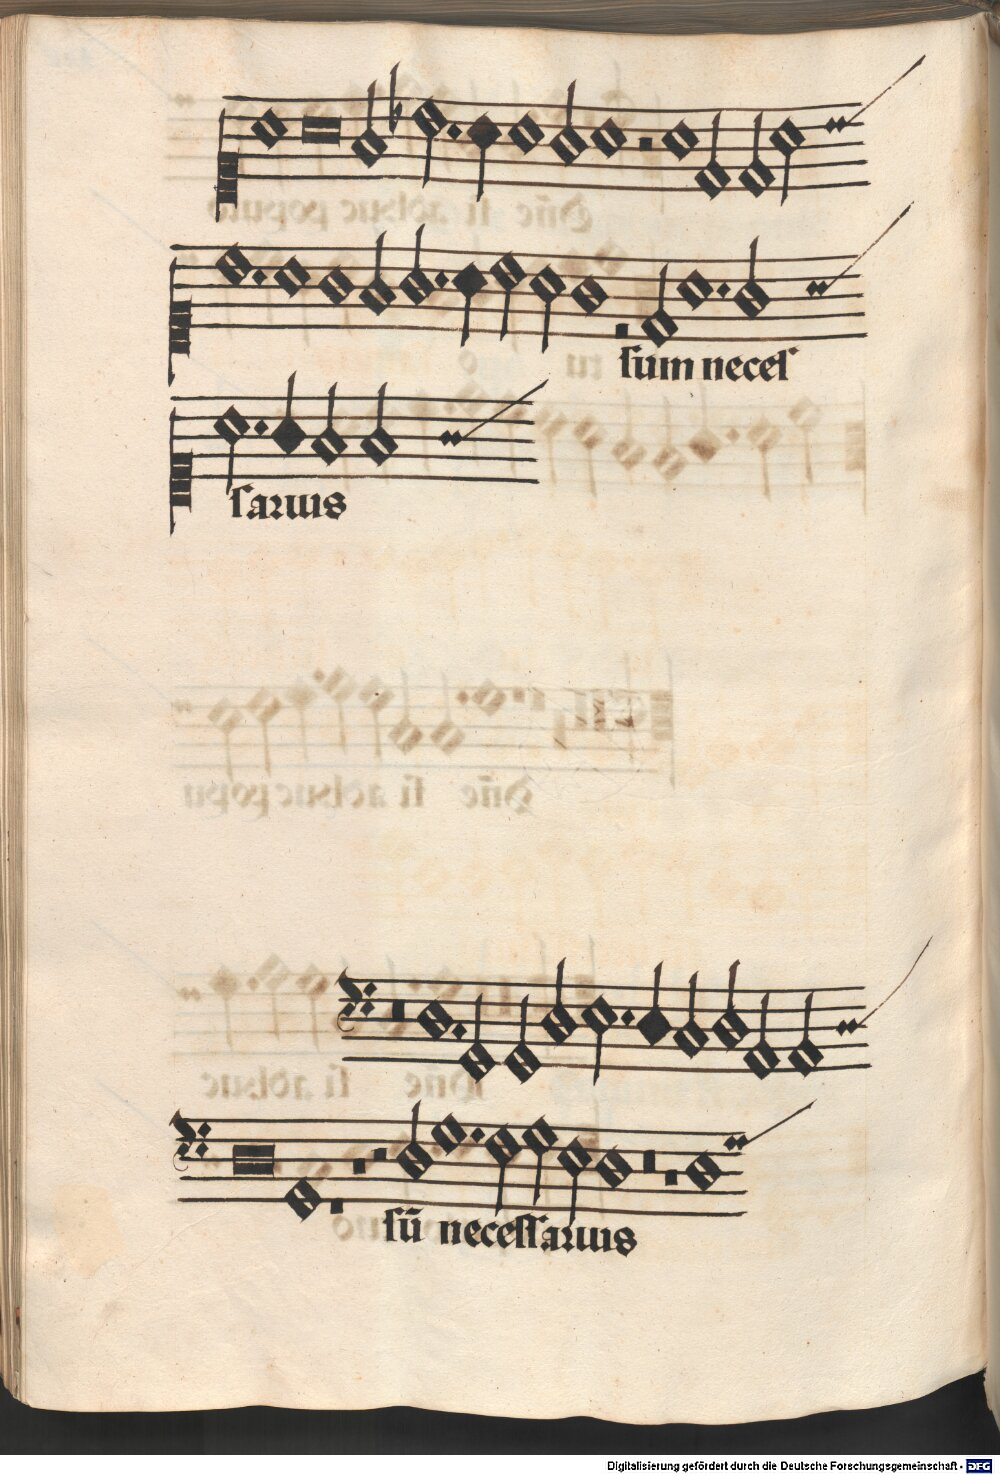 sum neces
sarius
sū necessarius
Digitalisierung gefördert durch die Deutsche Forschungsgemeinschaft - DFG